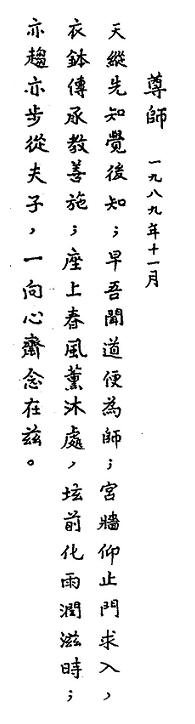 尊師 一九八九年十一月
天縱先知覺後知；早吾聞道便為師；宮牆仰止門求入，
衣鉢傳承教善施；座上春風薰沐處，坫前化雨潤滋時；
亦趨亦步從夫子，一向心齋念在兹。